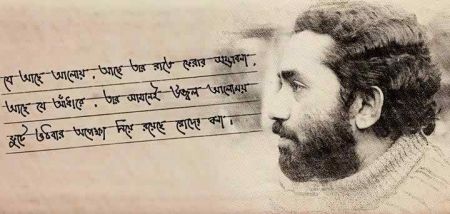 যে আছে আলোয়, আছে তার রাতে ফেরার সম্ভাবনা,
আছে যে আঁধারে, তার সামনেই উজ্জ্বল আলোময়
ফুটে উঠবার অপেক্ষা নিয়ে রয়েছে রোদের কণা।